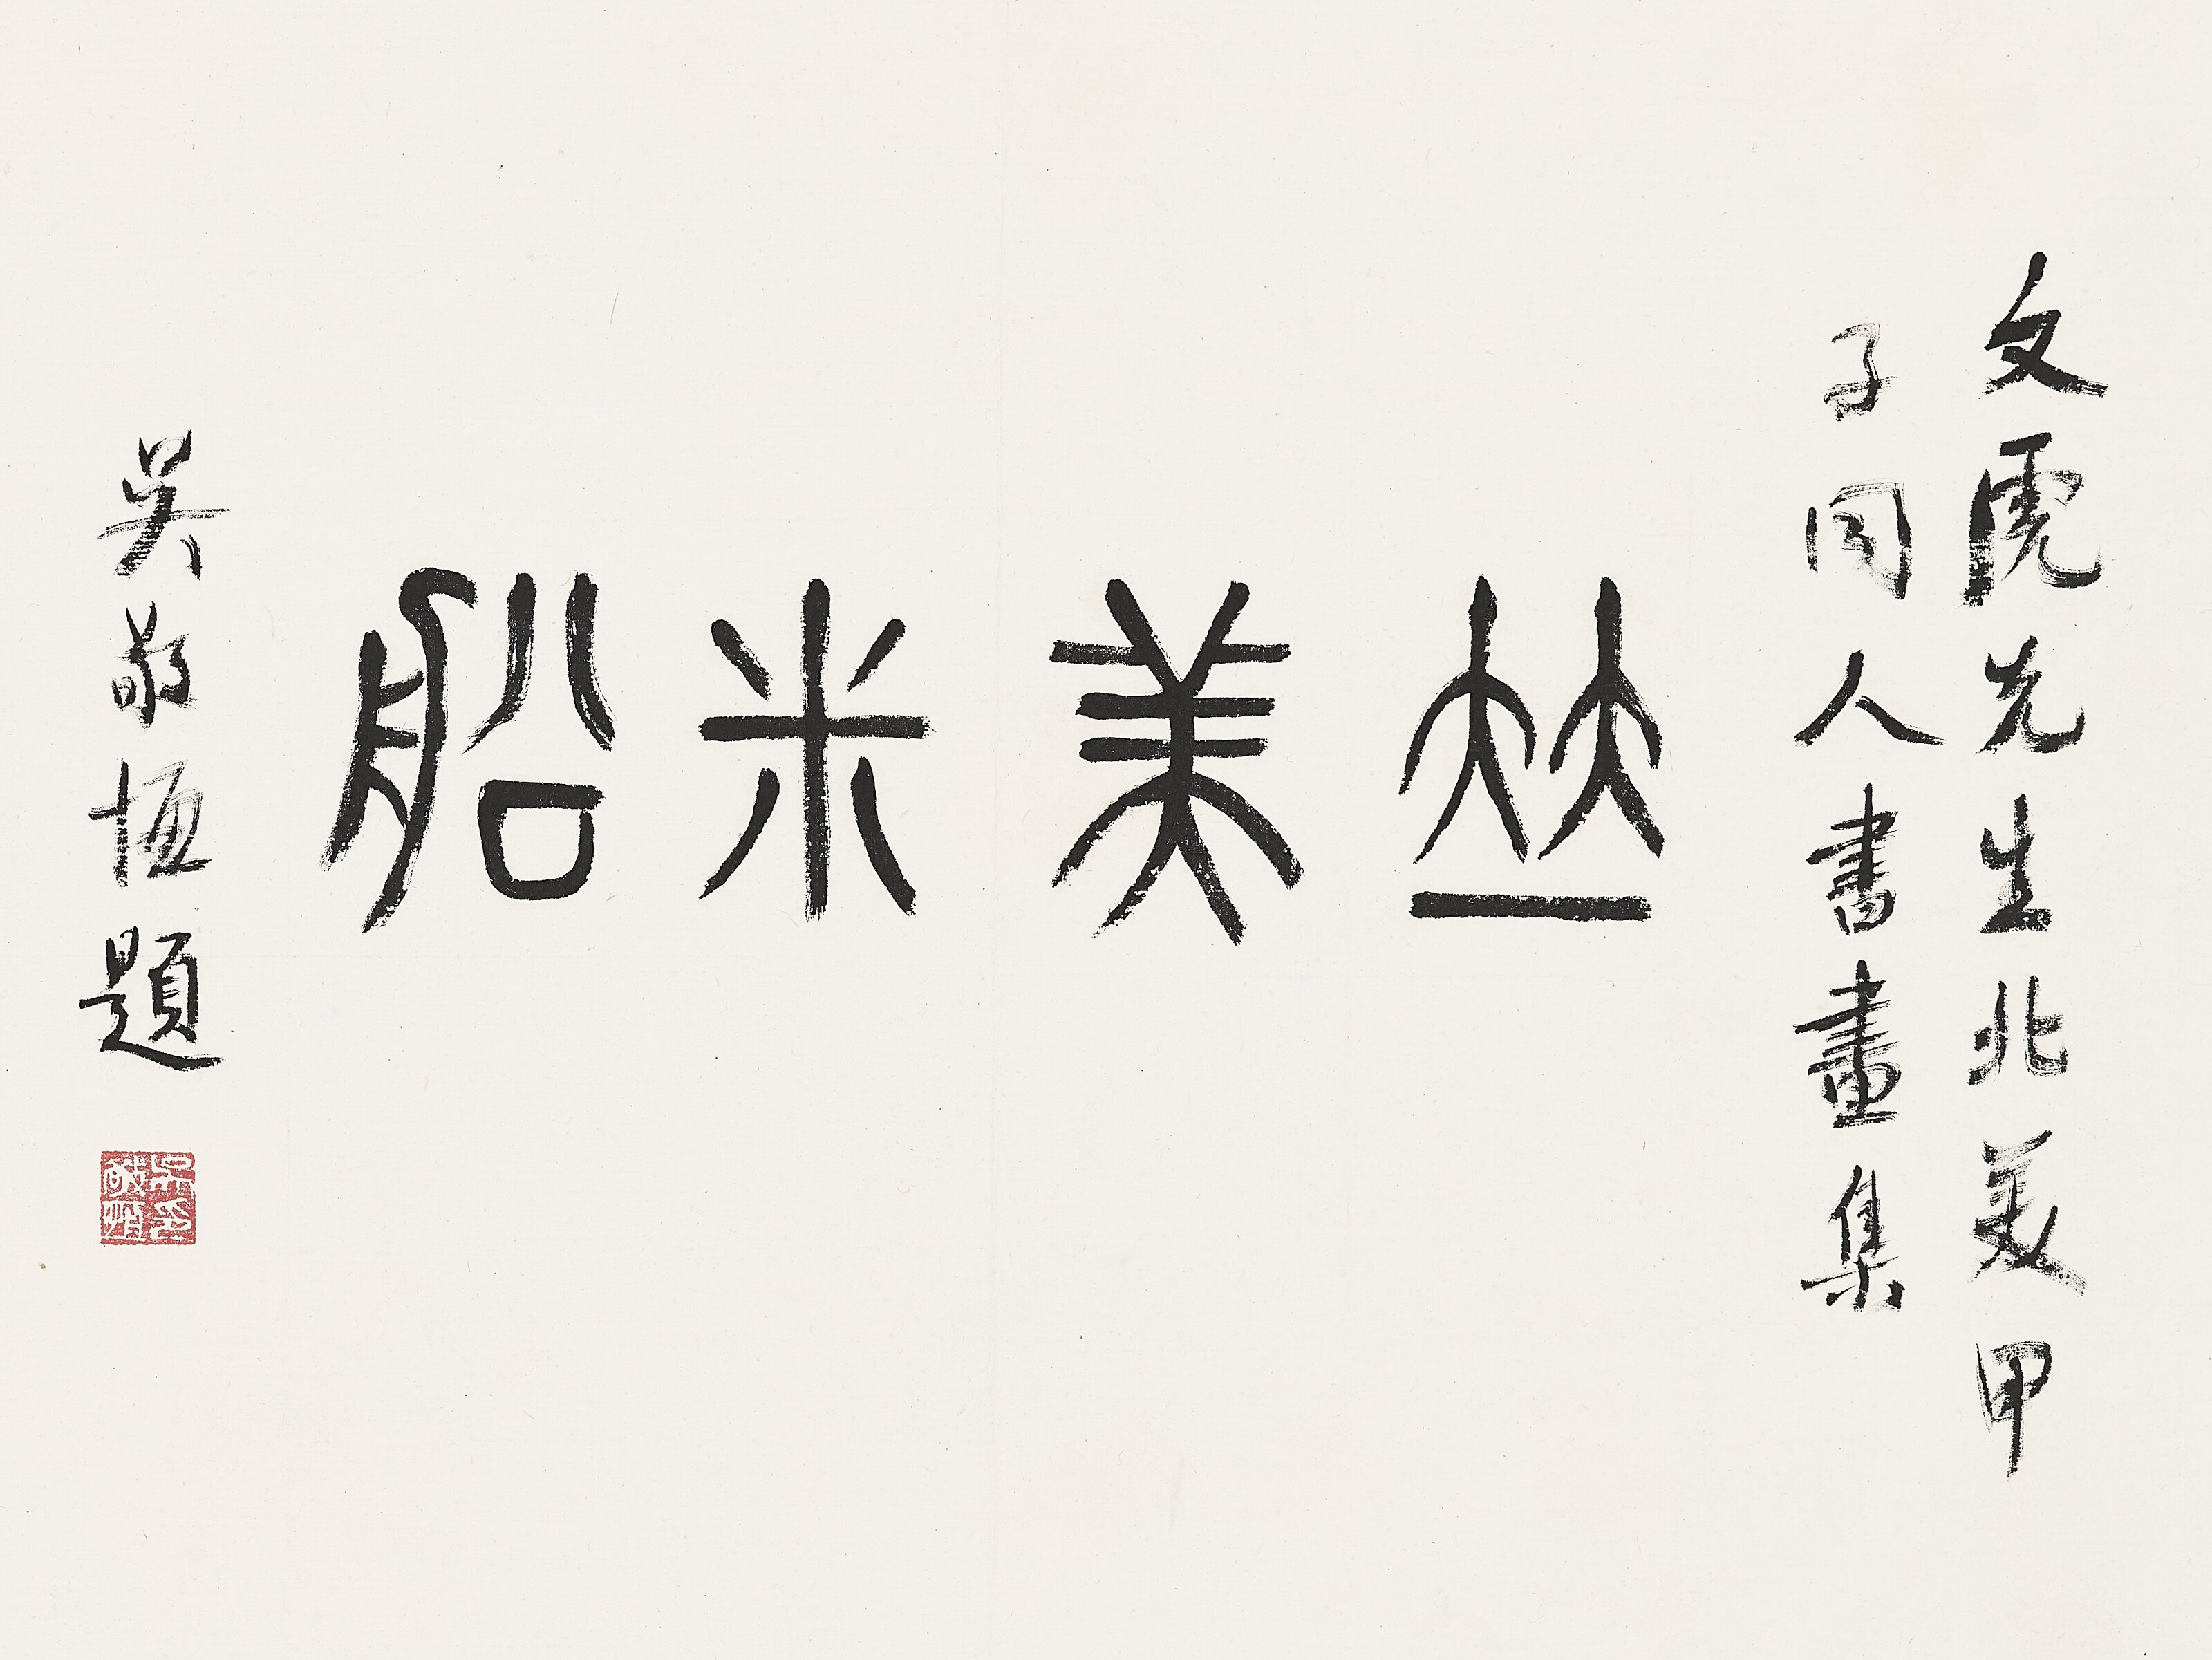 文虎先生北美甲
子同人書畫集
並美米船
吳敬恆題
吳印敬恆